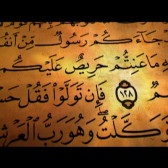 جَآءَكُمْ رَسُولٌ مِّنْ أَنفُ
مَا عَنِتُّمْ حَرِيصٌ عَلَيْكُم
١٢٨ فَإِن تَوَلَّوْا۟ فَقُلْ حَسْ
كَّلْتُ ۖ وَهُوَ رَبُّ ٱلْعَرْشِ